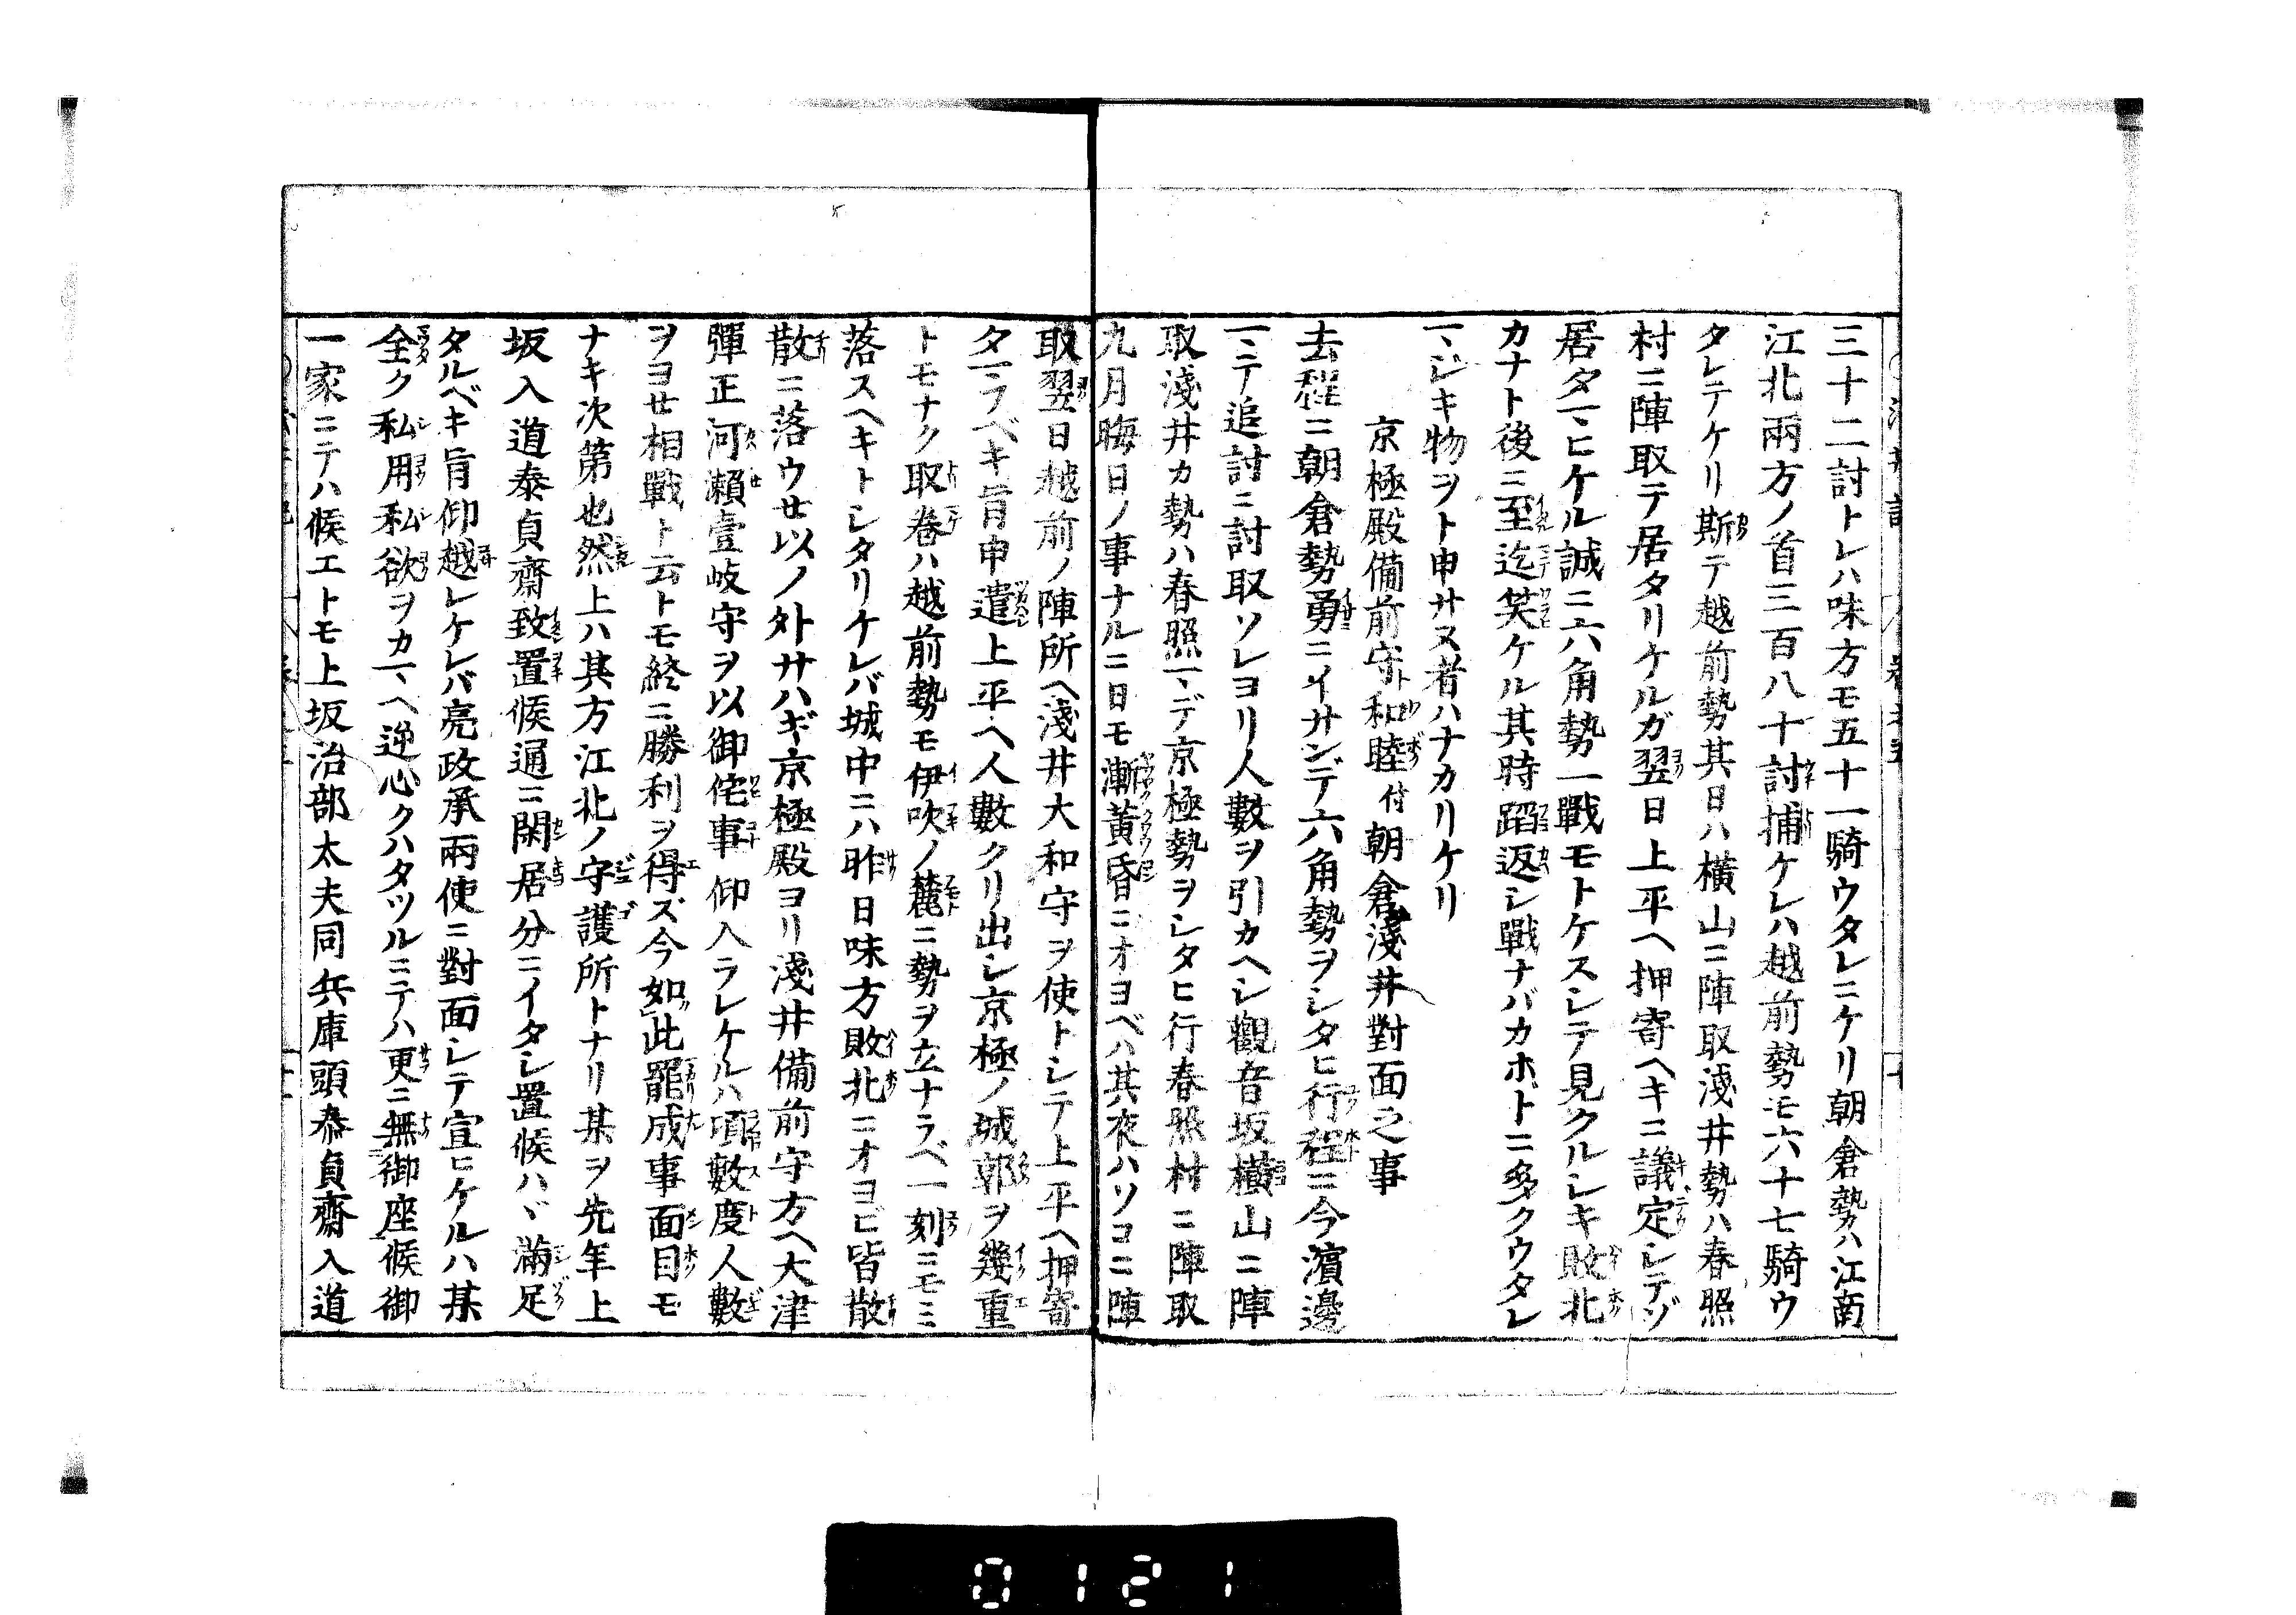 三十二討トレハ味方モ五十一騎ウタレニケリ朝倉勢ハ江南
江北兩方ノ首三百八十討捕ケレハ越前勢モ六十七騎ウ
タレテケリ斯テ越前勢其日ハ橫山ニ陣取淺井勢ハ春照
村ニ陣取テ居タリケルガ翌日上平ヘ押寄ヘキニ議定シテゾ
居タマヒケル誠ニ六角勢一戰モトケスシテ見クルシキ敗北
カナト後ニ至迄笑ケル其時蹈返シ戰ナバカホトニ多クウタレ
マジキ物ヲト申サヌ者ハナカリケリ
京極殿備前守ト和睦付朝倉淺井對面之事
去程ニ朝倉勢勇ニイサンデ六角勢ヲシタヒ行程ニ今濱邊
マテ追討ニ討取ソレヨリ人數ヲ引カヘシ觀音坂橫山ニ陣
取淺井カ勢ハ春照マデ京極勢ヲシタヒ行春照村ニ陣取
九月晦日ノ事ナルニ日モ漸黃昏ニオヨベハ其夜ハソコニ陣
取翌日越前ノ陣所ヘ淺井大和守ヲ使トシテ上平ヘ押寄
タマフベキ旨申遣上平ヘ人數クリ出シ京極ノ城郭ヲ幾重
トモナク取卷ハ越前勢モ伊吹ノ麓ニ勢ヲ立ナラベ一刻ニモミ
落スヘキトシタリケレバ城中ニハ昨日味方敗北ニオヨビ皆散
散ニ落ウセ以ノ外サハギ京極殿ヨリ淺井備前守方ヘ大津
彈正河瀨壹岐守ヲ以御侘事仰入ラレケルハ頃數度人數
ヲヨセ相戰ト云トモ終ニ勝利ヲ得ズ今如此罷成事面目モ
ナキ次第也然上ハ其方江北ノ守護所トナリ某ヲ先年上
坂入道泰貞齋致置候通ニ閑居分ニイタシ置候ハヾ滿足
タルベキ旨仰越レケレバ亮政承兩使ニ對面シテ宣ヒケルハ某
全ク私用私欲ヲカマヘ逆心クハタツルニテハ更ニ無御座候御
一家ニテハ候エトモ上坂治部太夫同兵庫頭泰貞齋入道